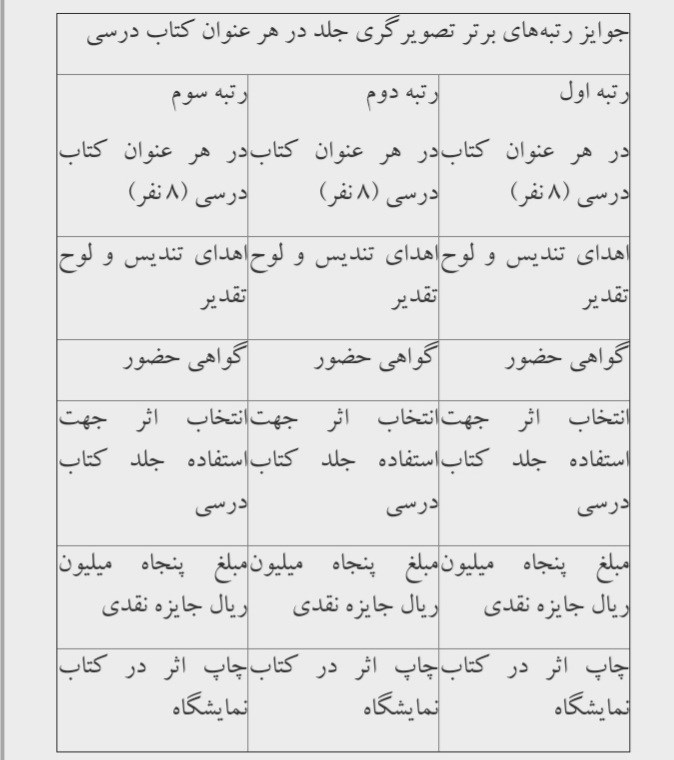 جوایز رتبه‌های برتر تصویرگری جلد در هر عنوان کتاب درسی
رتبه اول
در هر عنوان کتاب
درسی (۸ نفر)
رتبه دوم
در هر عنوان کتاب
درسی (۸ نفر)
رتبه سوم
در هر عنوان کتاب
درسی (۸ نفر)
اهدای تندیس و لوح
تقدیر
اهدای تندیس و لوح
تقدیر
اهدای تندیس و لوح
تقدیر
گواهی حضور
گواهی حضور
گواهی حضور
انتخاب اثر جهت
استفاده جلد کتاب
درسی
انتخاب اثر جهت
استفاده جلد کتاب
درسی
انتخاب اثر جهت
استفاده جلد کتاب
درسی
مبلغ پنجاه میلیون
ریال جایزه نقدی
مبلغ پنجاه میلیون
ریال جایزه نقدی
مبلغ پنجاه میلیون
ریال جایزه نقدی
چاپ اثر در کتاب
نمایشگاه
چاپ اثر در کتاب
نمایشگاه
چاپ اثر در کتاب
نمایشگاه